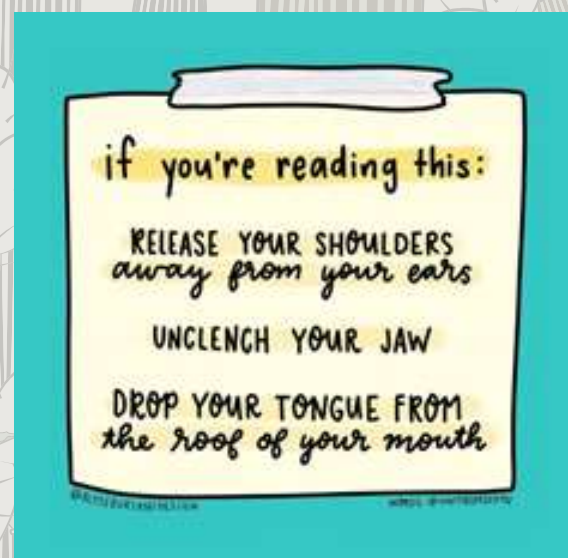 if you're reading this:
RELEASE YOUR SHOULDERS
away from your ears
UNCLENCH YOUR JAW
DROP YOUR TONGUE FROM
the roof of your mouth